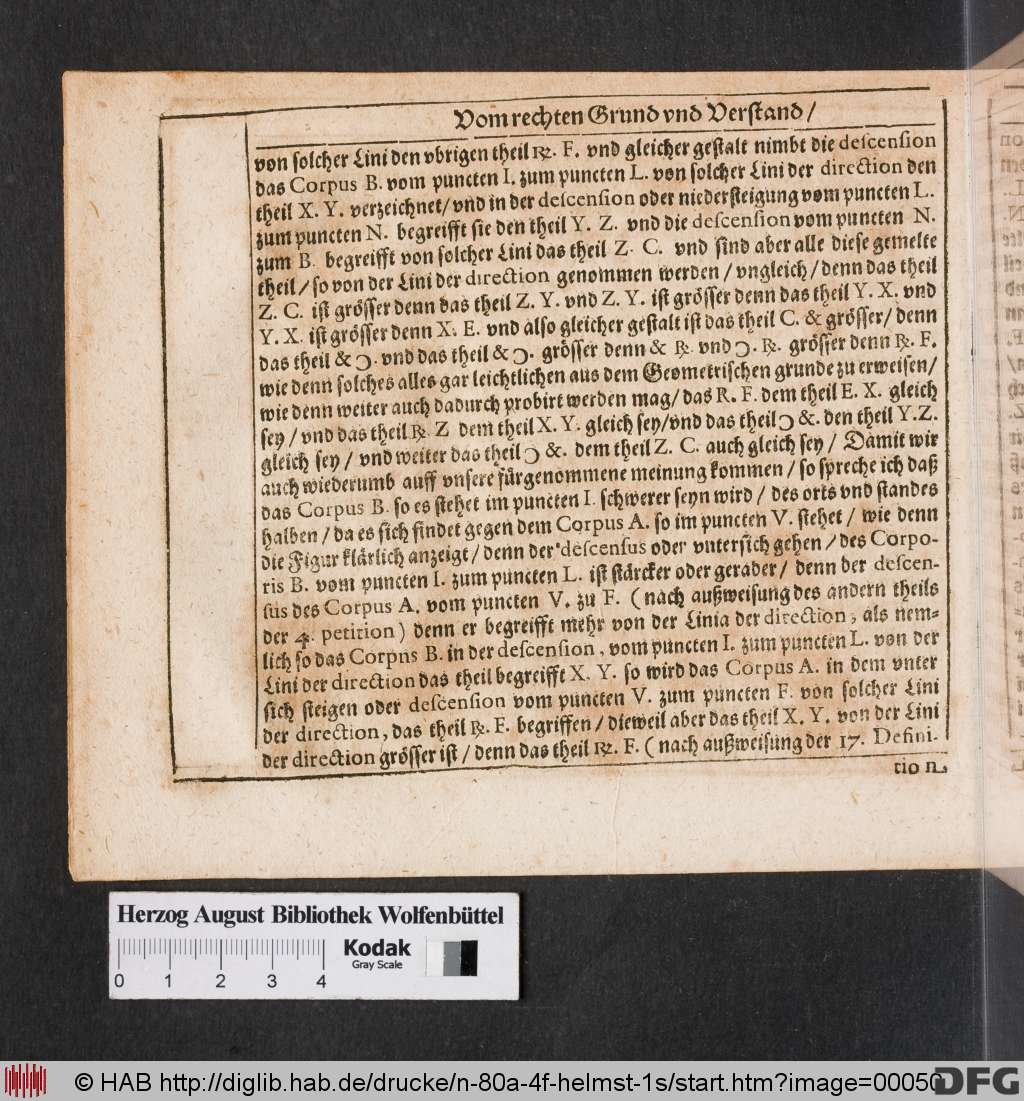 Vom rechten Grund vnd Verstand /
von solcher Lini den vbrigen theil ꝶ. F. vnd gleicher gestalt nimbt die descension
das Corpus B. vom puncten I. zum puncten L. von solcher Lini der direction den
theil X. Y. verzeichnet/ vnd in der descension oder niedersteigung vom puncten L.
zum puncten N. begreifft sie den theil Y. Z. vnd die descension vom puncten N.
zum B. begreifft von solcher Lini das theil Z. C. vnd sind aber alle diese gemelte
theil / so von der Lini der direction genommen werden / vngleich / denn das theil
Z. C. ist grösser denn das theil Z. Y. vnd Z. Y. ist grösser denn das theil Y. X. vnd
Y. X. ist grösser denn X. E. vnd also gleicher gestalt ist das theil C. & grösser / denn
das theil & ↄ. vnd das theil & ↄ. grösser denn & ꝶ. vnd ↄ. ꝶ. grösser denn ꝶ. F.
wie denn solches alles gar leichtlichen aus dem Geometrischen grunde zu erweisen /
wie denn weiter auch dadurch probirt werden mag / das R. F. dem theil E. X. gleich
sey / vnd das theil ꝶ Z dem theil X. Y. gleich sey/vnd das theil ↄ &. den theil Y.Z.
gleich sey / vnd weiter das theil ↄ &. dem theil Z. C. auch gleich sey / Damit wir
auch wiederumb auff vnsere fürgenommene meinung kommen / so spreche ich daß
das Corpus B. so es stehet im puncten I. schwerer seyn wird / des orts vnd standes
halben / da es sich findet gegen dem Corpus A. so im puncten V. stehet / wie denn
die Figur klärlich anzeigt / denn der descensus oder vntersich gehen / des Corpo-
ris B. vom puncten I. zum puncten L. ist stärcker oder gerader / denn der descen-
sus des Corpus A. vom puncten V. zu F. ( nach außweisung des andern theils
der 4. petition ) denn er begreifft mehr von der Linia der direction, als nem-
lich so das Corpns B. in der descension, vom puncten I. zum puncten L. von der
Lini der direction das theil begreifft X. Y. so wird das Corpus A. in dem vnter
sich steigen oder descension vom puncten V. zum puncten F. von solcher Lini
der direction, das theil ꝶ. F. begriffen / dieweil aber das theil X. Y. von der Lini
der direction grösser ist / denn das theil ꝶ. F. ( nach außweisung der 17. Defini-
tio n
Herzog August Bibliothek Wolfenbüttel
Kodak
Gray Scale
0 1 2 3 4
© HAB http://diglib.hab.de/drucke/n-80a-4f-helmst-1s/start.htm?image=00050
DFG